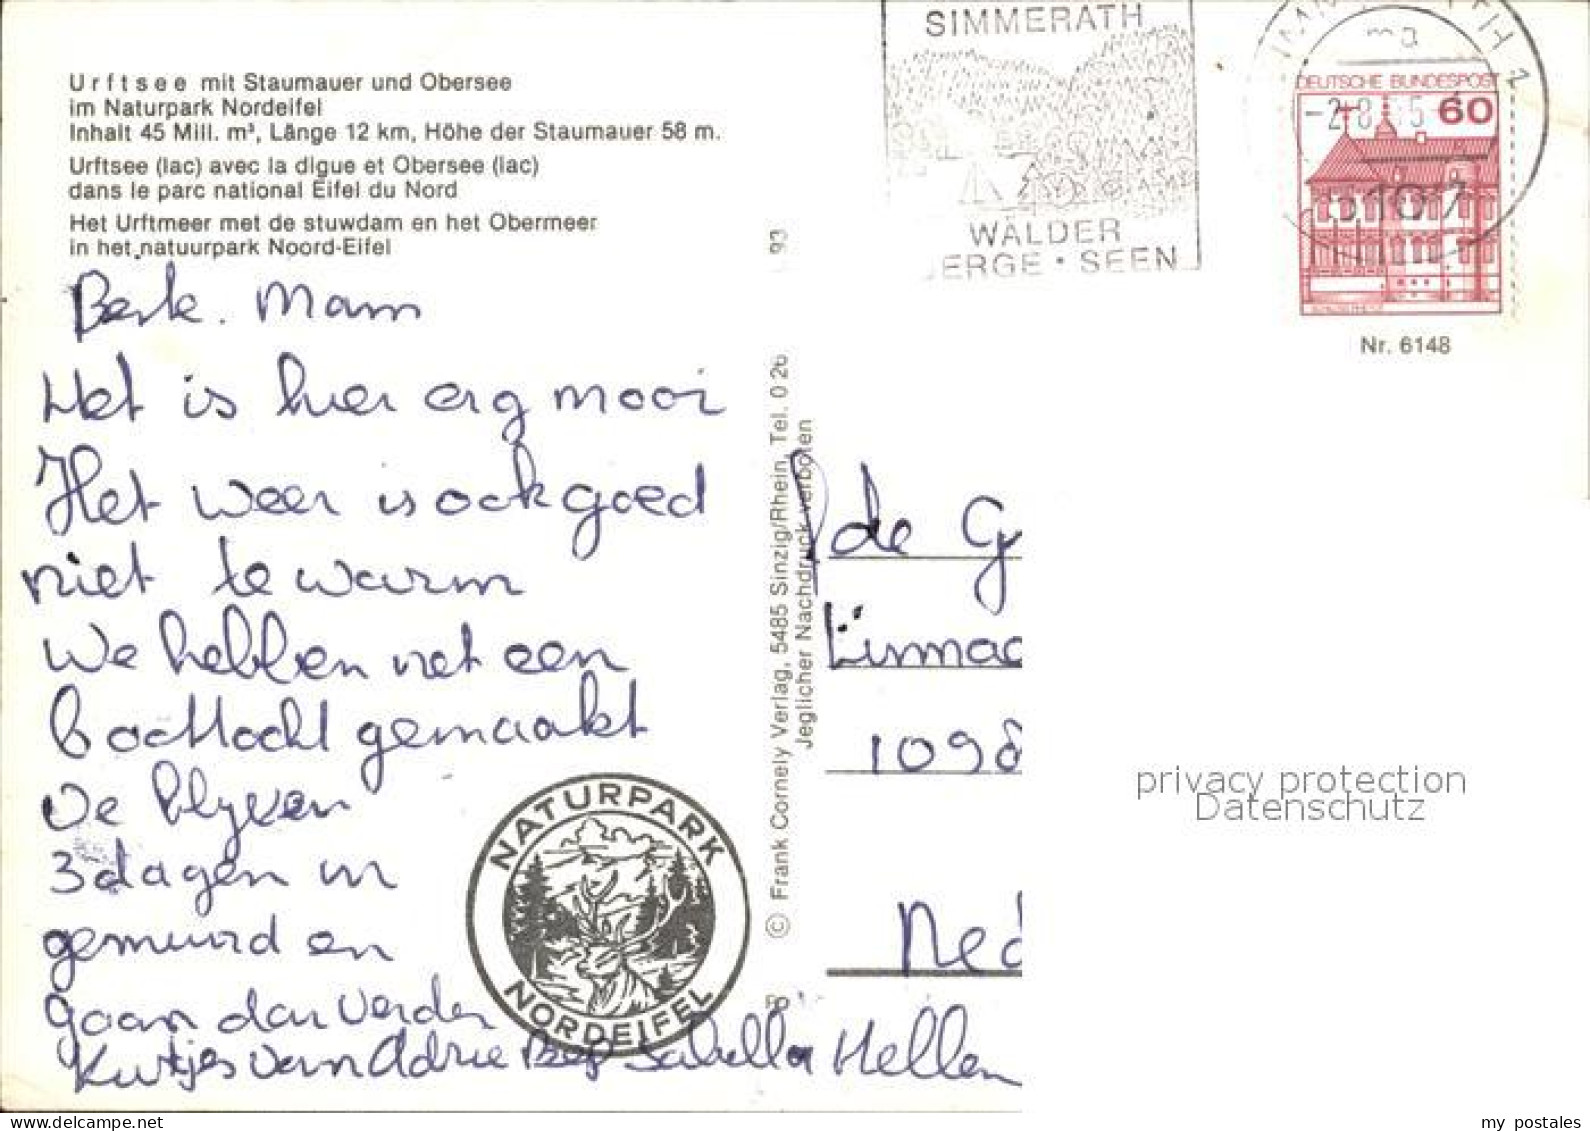 Urftsee mit Staumauer und Obersee
im Naturpark Nordeifel
Inhalt 45 Mill. m³, Länge 12 km, Höhe der Staumauer 58 m.
Urftsee (lac) avec la digue et Obersee (lac)
dans le parc national Eifel du Nord
Het Urftmeer met de stuwdam en het Obermeer
in het natuurpark Noord-Eifel
Mam
Het is hier erg mooi
Het weer is ook goed
niet te warm
We hebben net een
bochtocht gemaakt
We blijven
3 dagen in
gemuind en
gaan dan verder
Kusjes van Adrie Bep Isabella Hellen
NATURPARK
NORDEIFEL
93
© Frank Cornely Verlag, 5485 Sinzig/Rhein, Tel. 0 26
Jeglicher Nachdruck verboten
SIMMERATH
WÄLDER
ERGE • SEEN
DEUTSCHE BUNDESPOST
60
5107
Nr. 6148
de G
1098
Ned
privacy protection
Datenschutz
my postales